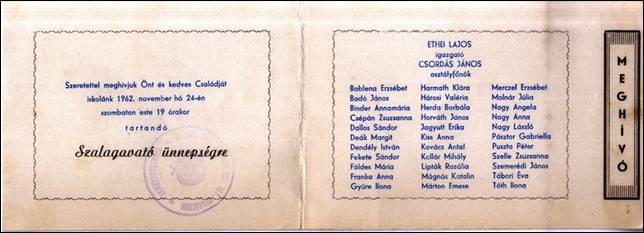 Szeretettel meghivjuk Önt és kedves Családját
iskolánk 1962. november hó 24-én
szombaton este 19 órakor
tartandó
Szalagavató ünnepségre
ETHEI LAJOS
igazgató
CSORDÁS JÁNOS
osztályfőnök
Bablena Erzsébet
Badó János
Binder Annamária
Csépán Zsuzsanna
Dallos Sándor
Deák Margit
Dendély István
Fekete Sándor
Földes Mária
Franka Anna
Gyüre Ilona
Harmath Klára
Hárosi Valéria
Herda Borbála
Horváth János
Jagyutt Erika
Kiss Anna
Kovács Antal
Kollár Mihály
Lipták Rozália
Mágnás Katalin
Márton Emese
Merczel Erzsébet
Molnár Júlia
Nagy Angela
Nagy Anna
Nagy László
Pásztor Gabriella
Puszta Péter
Szelle Zsuzsanna
Szemerédi János
Tábori Éva
Tóth Ilona
MEGHÍVÓ